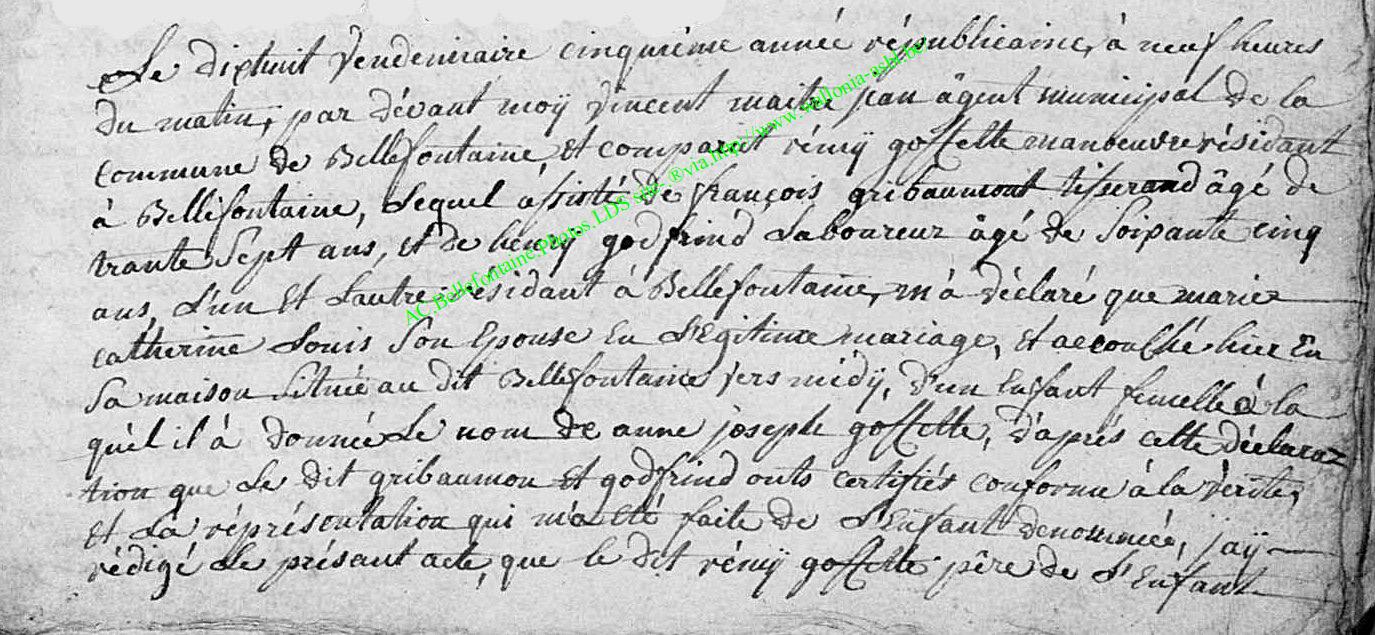 Le dixhuit Vendemiaire cinquiéme année républicaine, à neuf heures
du matin, par dévant moÿ Vincent maitre jean âgent municipal de la
commune de Bellefontaine, et comparut rémÿ gossette manoeuvre résidant
à Bellefontaine, Lequel assisté de françois gribaumont tisserand âgé de
trante Sept ans, et de henry godfrind Laboureur âgé de Soixante cinq
ans, L'un et Lautre résidant à Bellefontaine, m'à déclaré que marie
catherine Louis Son Epouse En L'Egitime mariage, et accouché hier En
Sa maison Située au dit Bellefontaine vers midÿ, d'un Enfant femelle à la
quél il à donnée Le nom de anne joseph gossette, d'aprés cette déclara=
tion que Le dit gribaumon et godfrind onts certifiés conforme à la vérité,
et La réprésentation qui m'a été faite de L'Enfant denommée, jaÿ
rédigé Le présant acte, que le dit rémÿ gossette pêre de L'Enfant
AC.Bellefontaine.Photos.LDS site ®via.http://www.wallonia-asbl.be